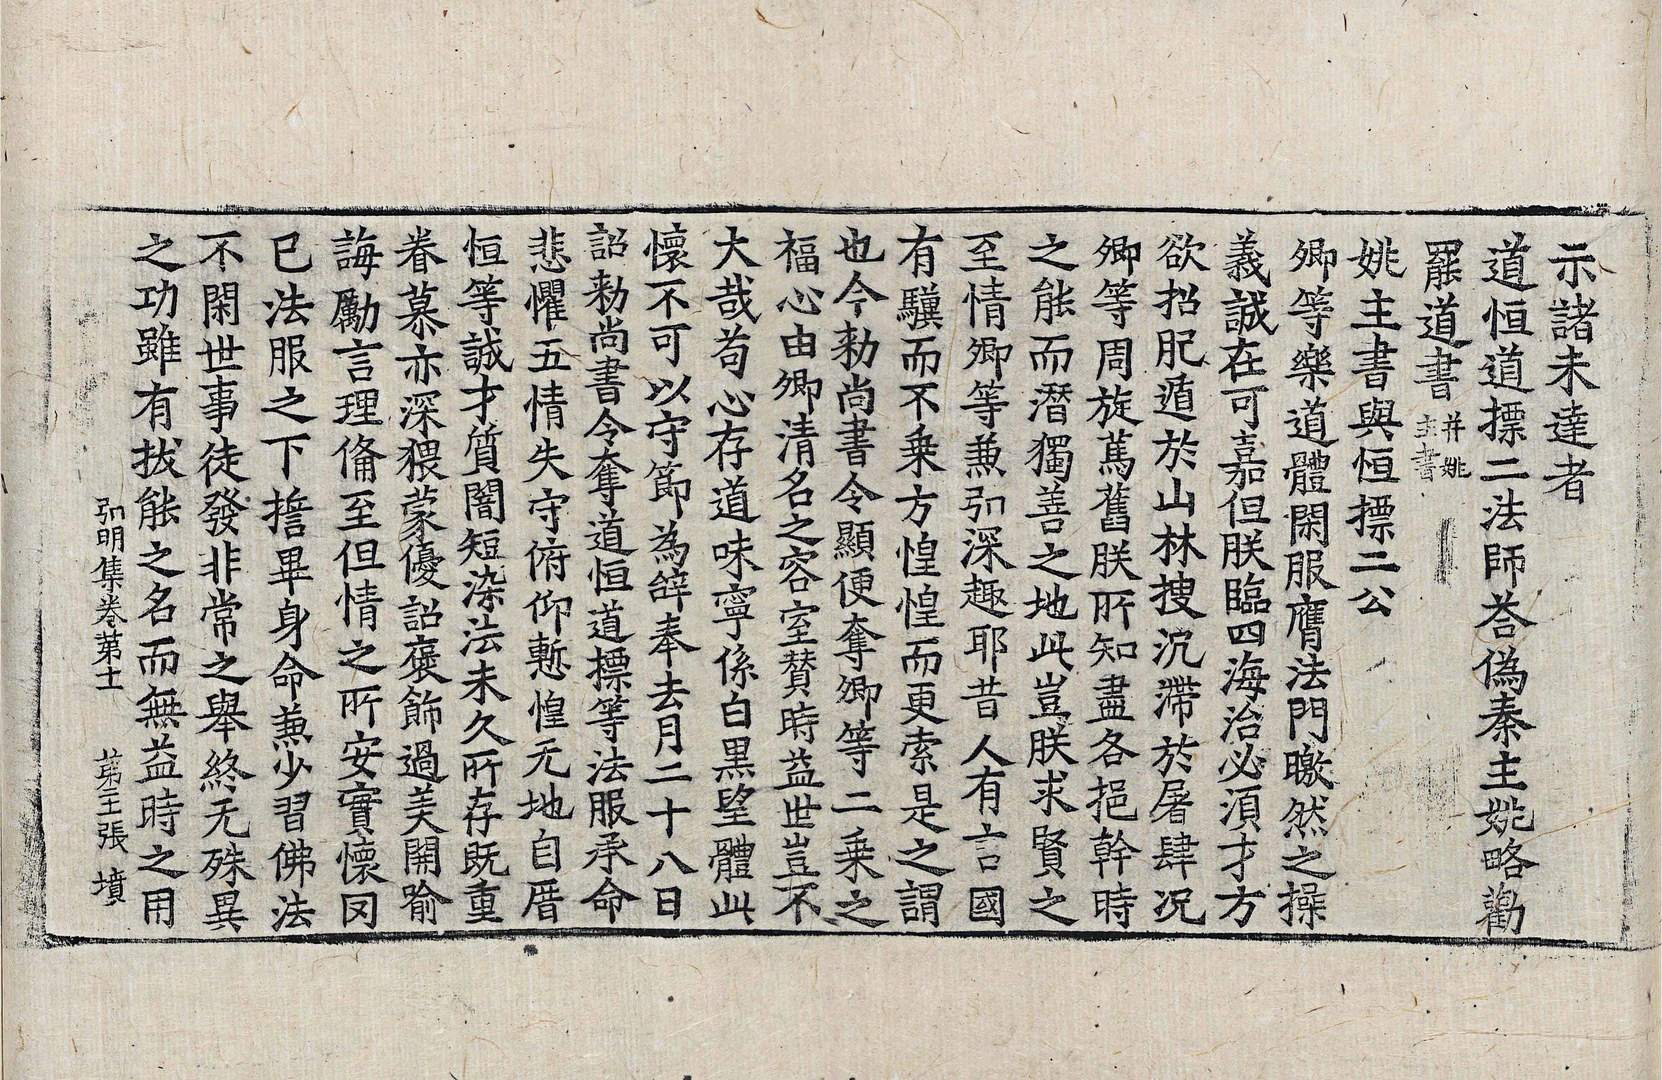 示諸未達者
道恒道摽二法師荅偽秦主姚略勸
罷道書 并姚主書
姚主書與恒摽二公
卿等樂道體閑服膺法門皦然之操
義誠在可嘉但朕臨四海治必須才方
欲招肥遁於山林搜沉滯於屠肆况
卿等周旋篤舊朕所知盡各挹幹時
之能而潜獨善之地此豈朕求賢之
至情卿等兼弘深趣耶昔人有言國
有驥而不乗方惶惶而更索是之謂
也今勑尚書令顯便奪卿等二乗之
福心由卿清名之容室賛時益世豈不
大哉苟心存道味寧係白黒望體此
懷不可以守節為辝奉去月二十八日
詔勑尚書令奪道恒道摽等法服承命
悲懼五情失守俯仰慙惶无地自厝
恒等誠才質闇短染法未久所存既重
眷慕亦深猥蒙優詔褒飾過美開喻
誨勵言理俻至但情之所安實懷罔
已法服之下擔畢身命兼少習佛法
不閑世事徒發非常之舉終无殊異
之功雖有拔能之名而無益時之用
弘明集卷第十一 第三張 墳